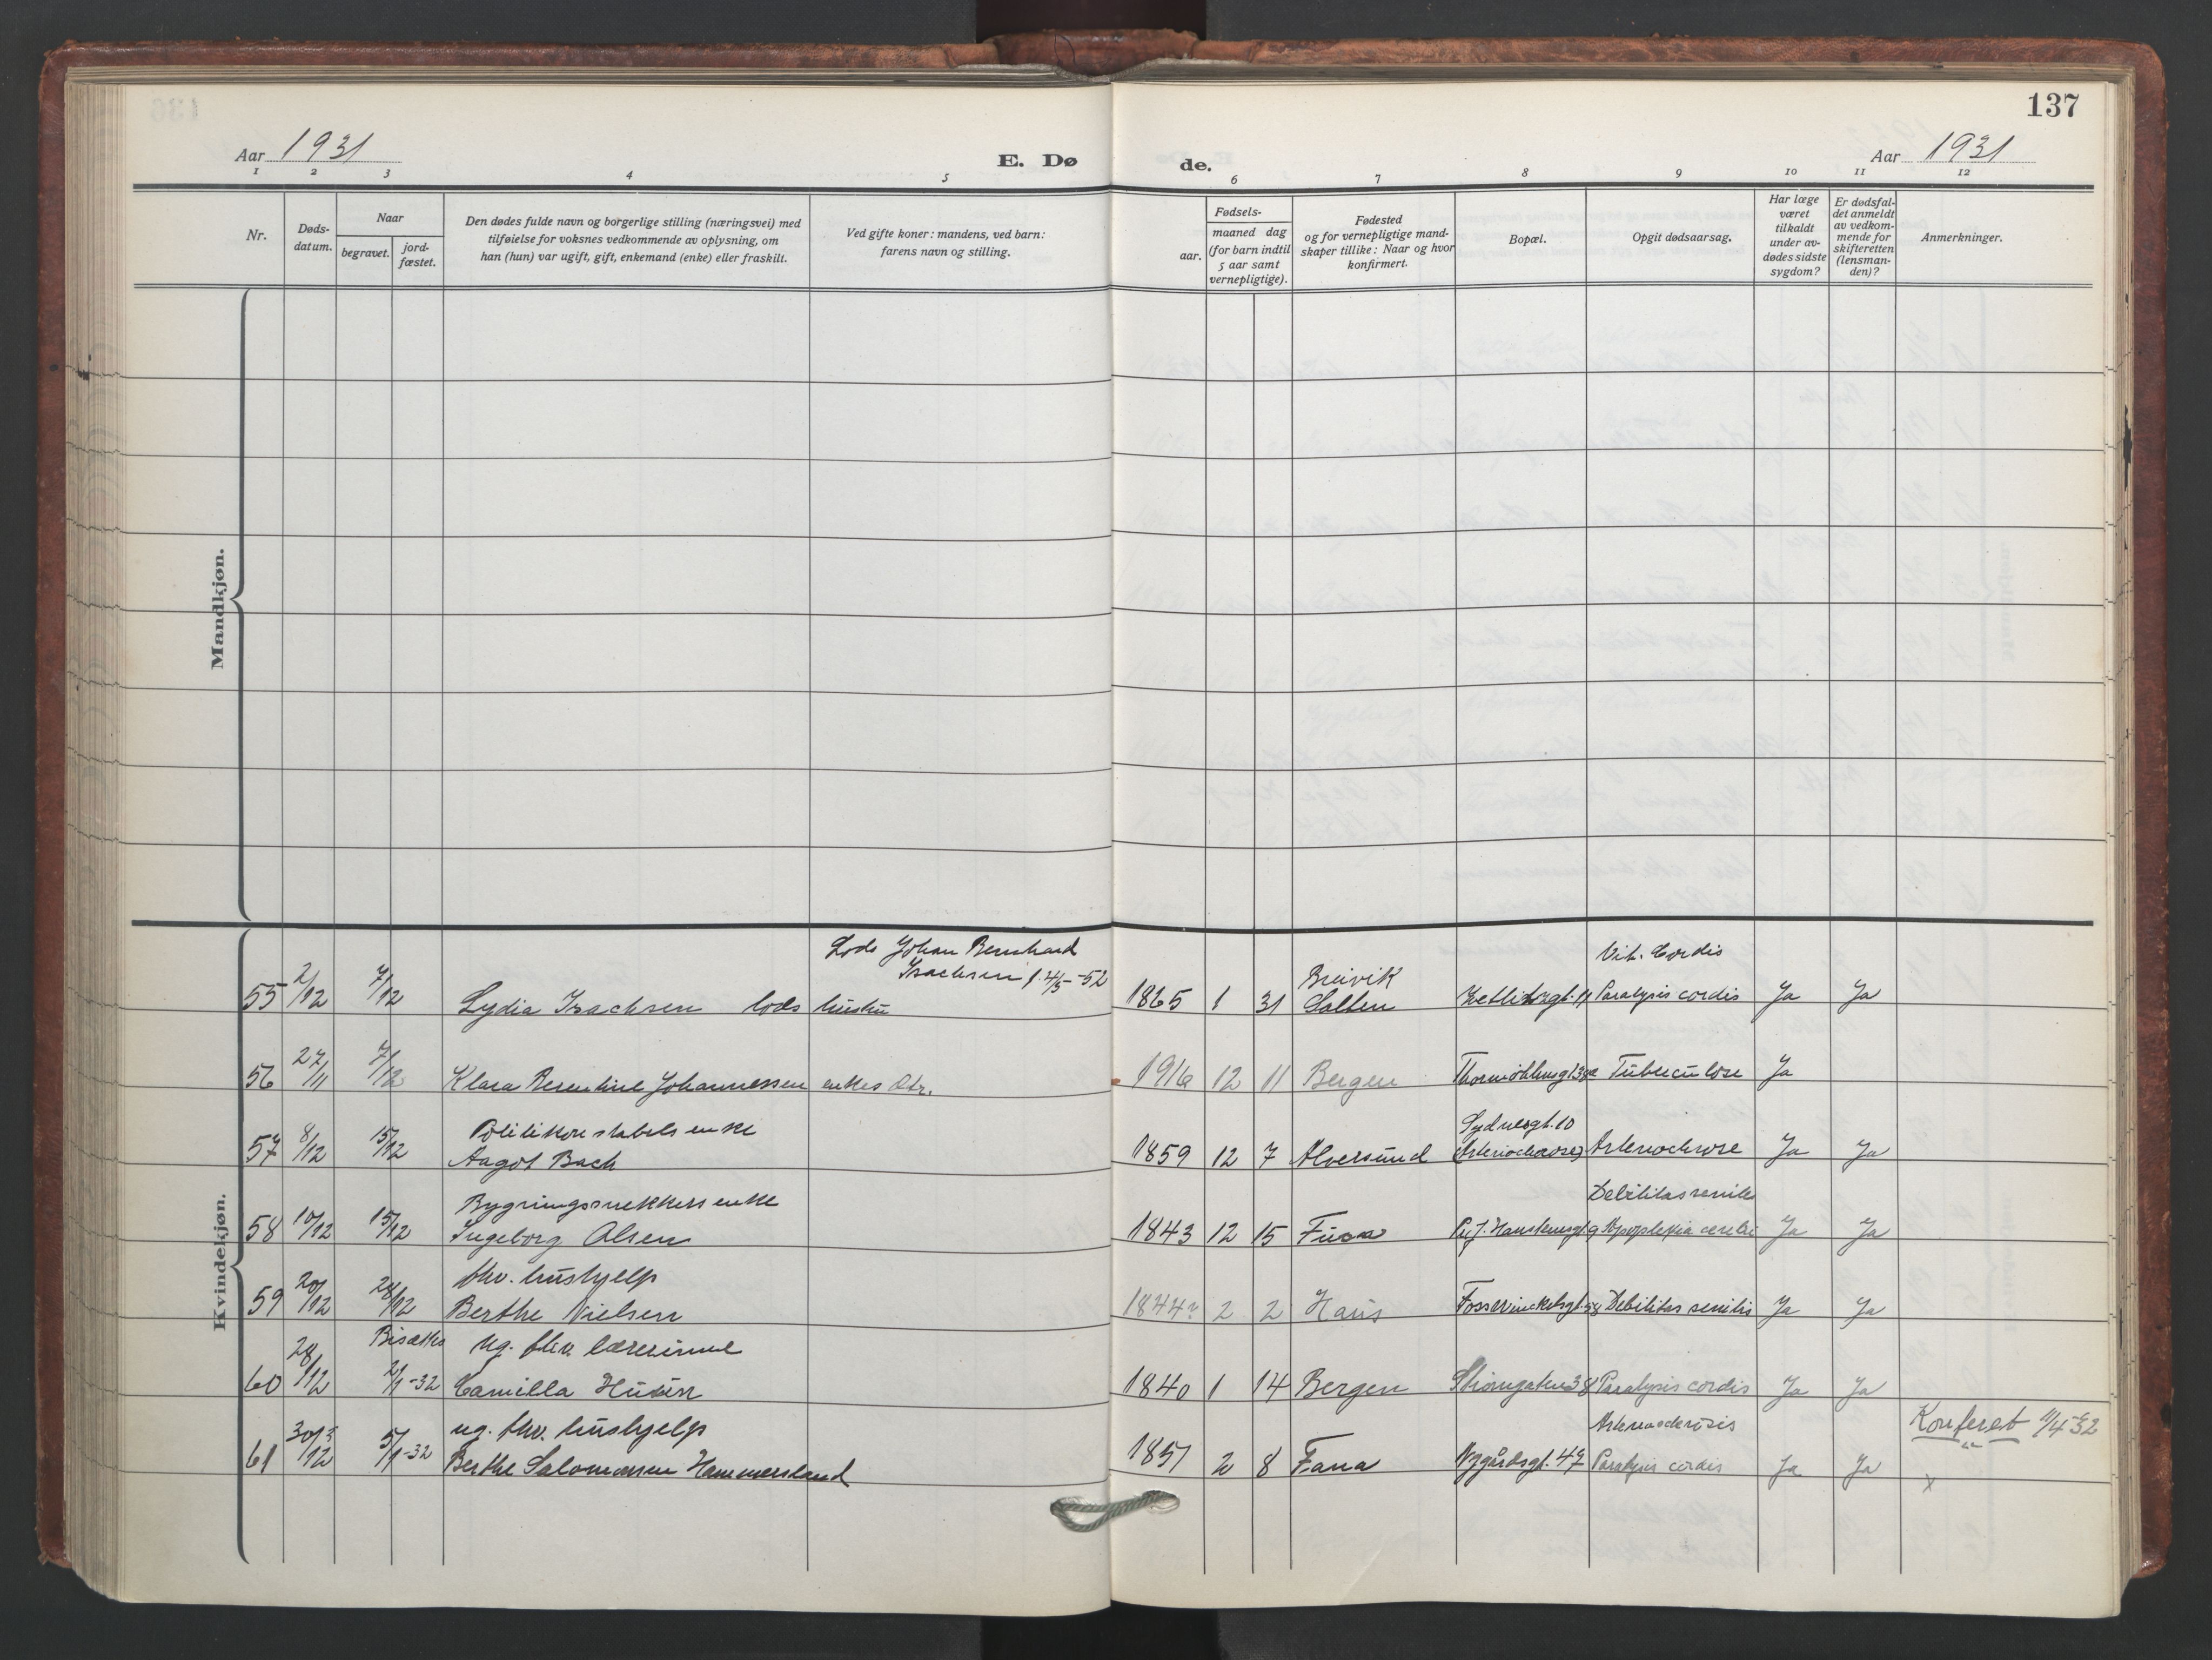 137
Aar 1931
E. Dø
de.
Aar 1931
1 2 3 4 5 6 7 8 9 10 11 12
Nr.
Døds-
datum.
Naar
begravet.
jord-
fæstet.
Den dødes fulde navn og borgerlige stilling (næringsvei) med
tilføielse for voksnes vedkommende av oplysning, om
han (hun) var ugift, gift, enkemand (enke) eller fraskilt.
Ved gifte koner: mandens, ved barn:
farens navn og stilling.
Fødsels-
aar.
maaned dag
(for barn indtil
5 aar samt
vernepligtige).
Fødested
og for vernepligtige mand-
skaper tillike: Naar og hvor
konfirmert.
Bopæl.
Opgit dødsaarsag.
Har læge
været
tilkaldt
under av-
dødes sidste
sygdom?
Er dødsfal-
det anmeldt
av vedkom-
mende for
skifteretten
(lensman-
den)?
Anmerkninger.
Mandkjøn.
Kvindekjøn.
Lods Johan Bernhard
Isachsen f. 4/5-52
Vit. Cordis
Breivik
55 2/12 7/12 Lydia Isachsen lods hustru 1865 1 31 Salten Paralysis cordis Ja Ja
56 27/11 7/12 Klara Johannessen enkes dtr. 1916 12 11 Bergen Tuberculose Ja
Politikonstabels enke Sydnesgt. 10
57 8/12 15/12 Aagot Bach 1859 12 7 Alversund Ja Ja
Bygningssnekkers enke Debilitas senilis
58 10/12 15/12 Ingeborg Olsen 1843 12 15 9 Apoplexia cerebri Ja Ja
fhv. hushjelp
59 20/12 28/12 Berthe Nielsen 1844? 2 2 Haus Fosswinckelsgt. 58 Debilitas senilis Ja Ja
Bisættes ug. fhv. lærerinne
60 28/12 2/1-32 Camilla 1840 1 14 Bergen 38 Paralysis cordis Ja Ja
ug. fhv. hushjelp Konferert 11/4 52
61 30/12 5/1-32 Berthe Salomonsen Hammersland 1851 2 8 Fana Nygårdsgt. 47 Paralysis cordis Ja Ja x